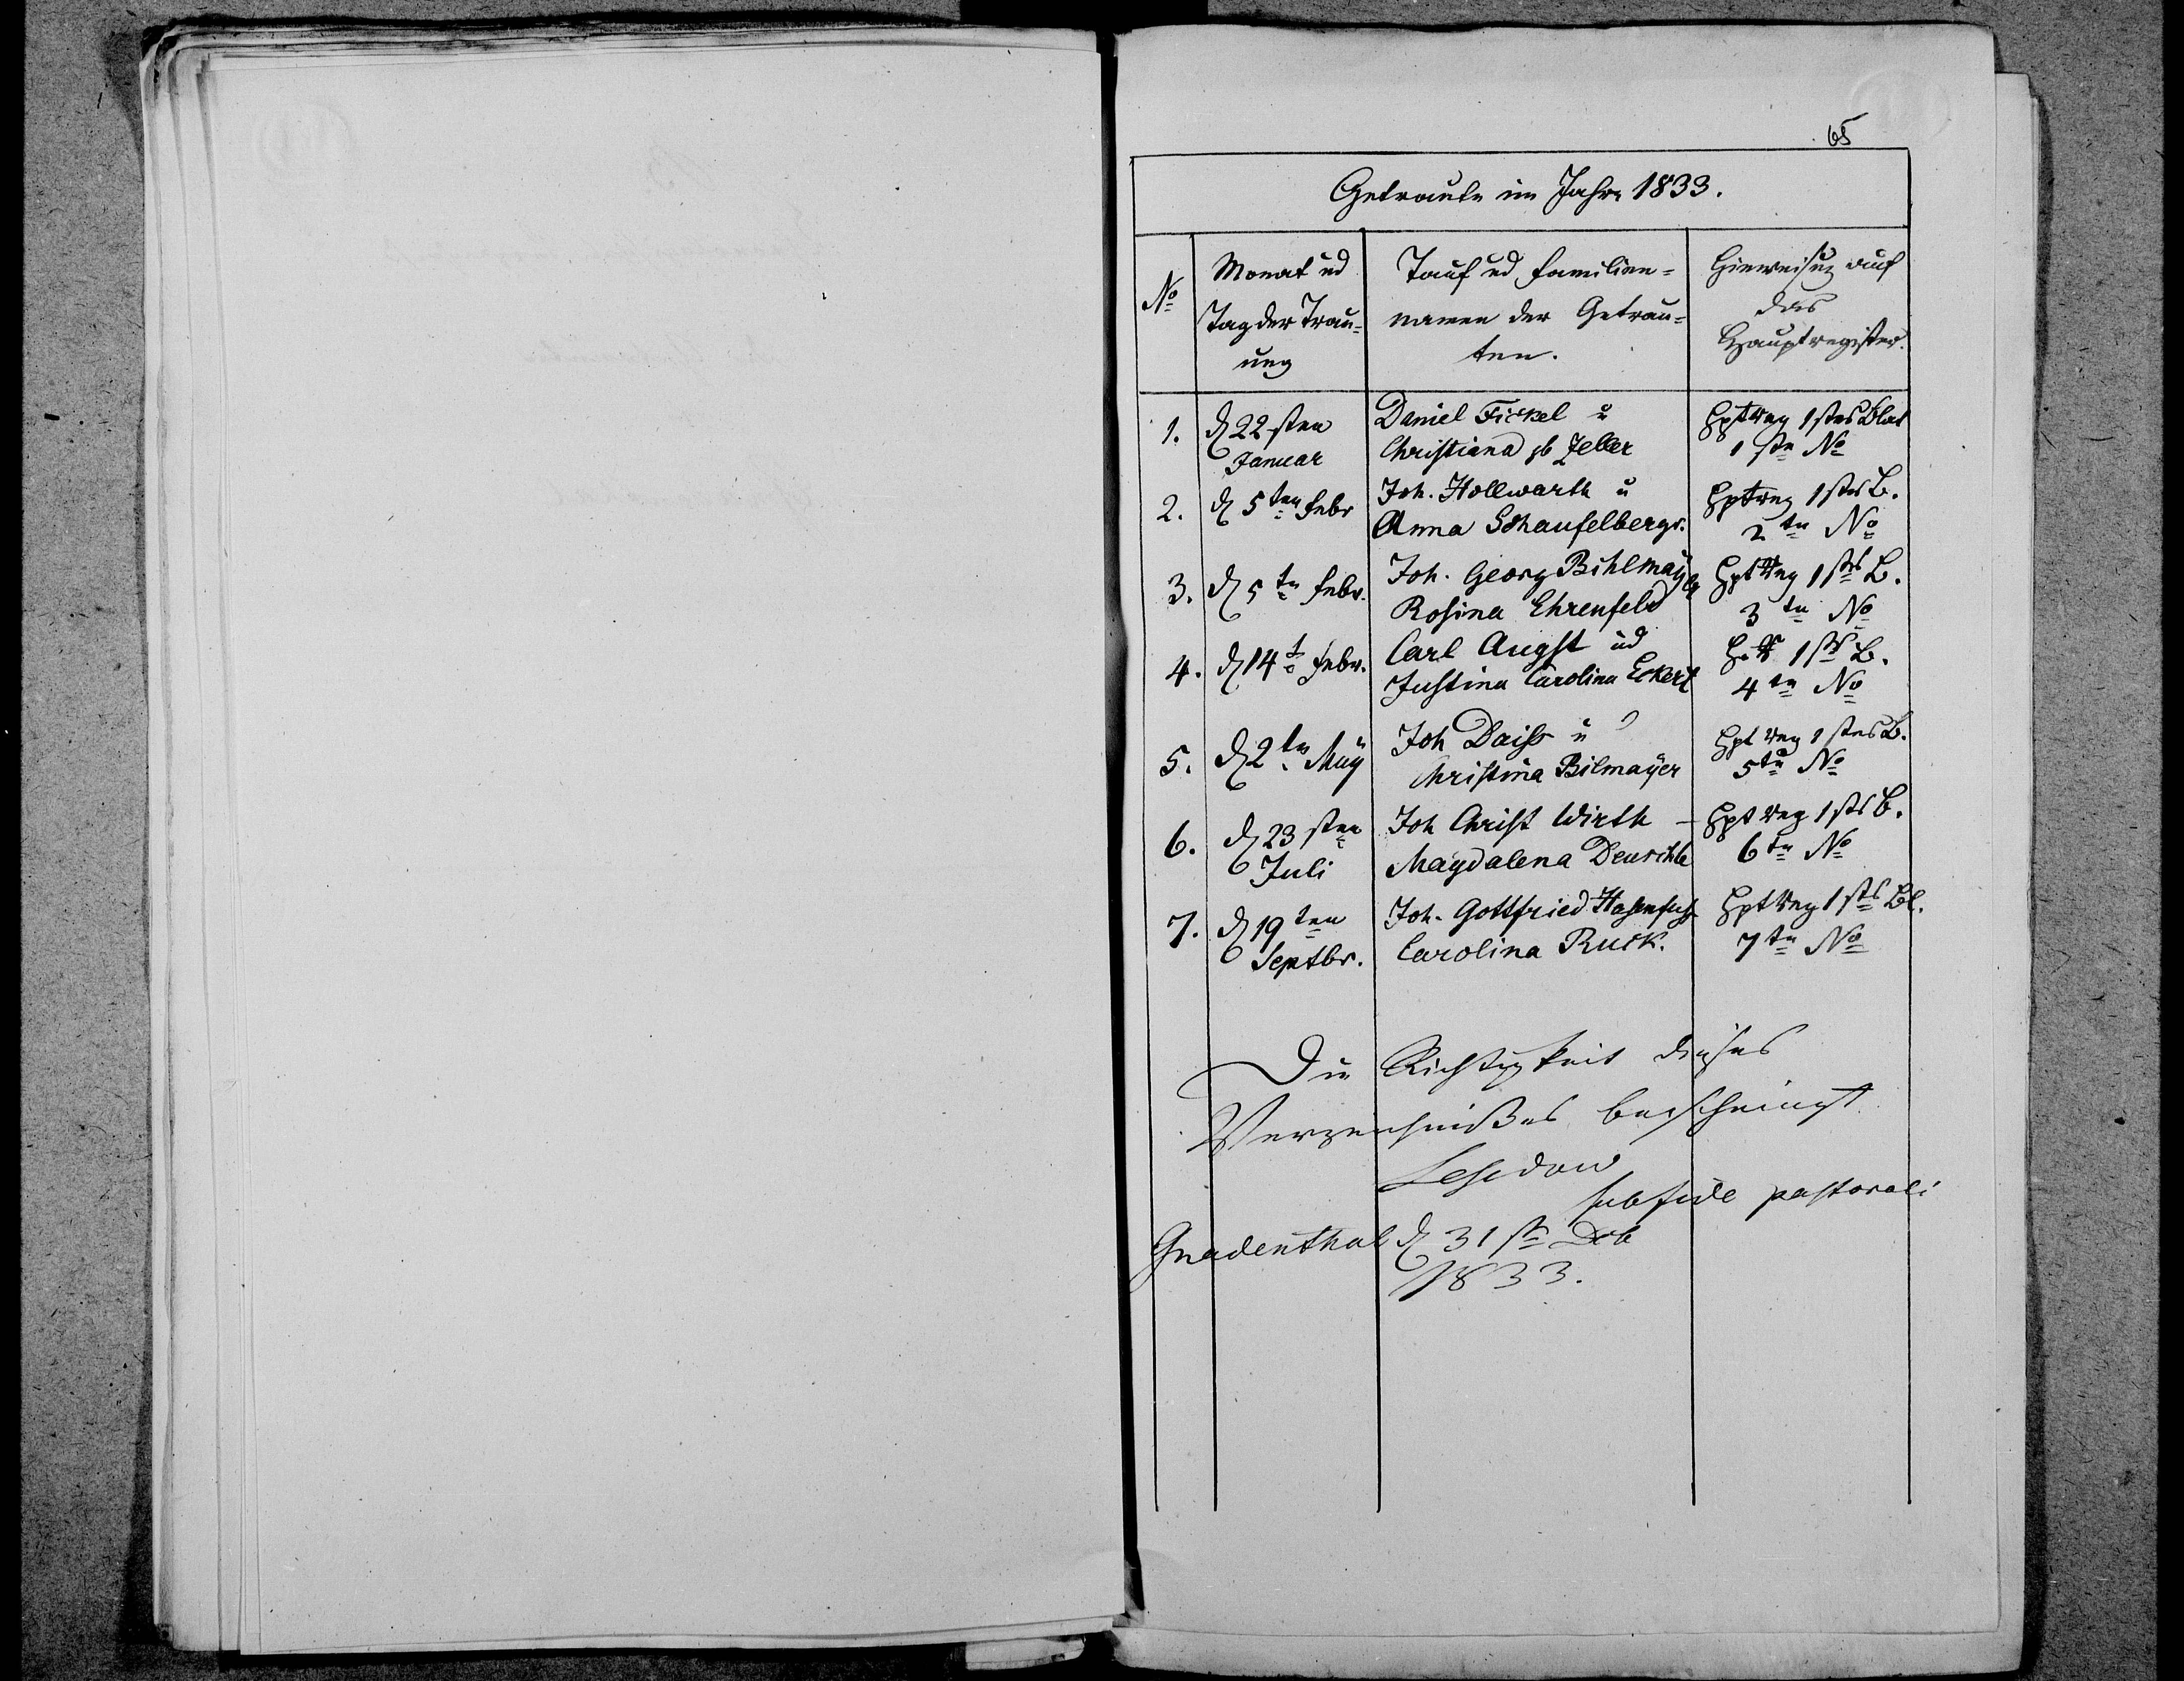 65
Getraute im Jahre 1833.
No
Monat ud
Tag der Trau-
ung
Tauf ud Familien-
namen der Getrau-
ten.
Hinweisung auf
das
Hauptregister.
1. d 22sten
Januar
Daniel Fickel u
Christiana gb Zeller
Hptreg 1stes Blat
1ste No
2. d 5ten Febr
Joh. Hollwarth u
Anna Schaufelbergr.
Hptreg 1stes B.
2te No
3. d 5te Febr.
Joh. Georg Bihlmaÿer
Rosina Ehrenfeld
Hptreg 1stes B.
3te No
4. d 14t Febr.
Carl Augst ud
Justina Carolina Eckert
1stes B.
4te No
5. d 2te Maÿ
Joh Daiss u
Christina Bilmaÿer
Hptreg 1stes B.
5te No
6. d 23sten
Juli
Joh Christ Wirth -
Magdalena Deuschle
Hptreg 1stes B.
6te No
7. d 19ten
Septbr.
Joh. Gottfried Hasenfuss
Carolina Ruck.
Hptreg 1stes Bl.
7te No
Die Richtigkeit dieses
Verzeichnißes bescheinigt
sub fide pastorali
Gnadenthal d 31ste Dcb
1833.